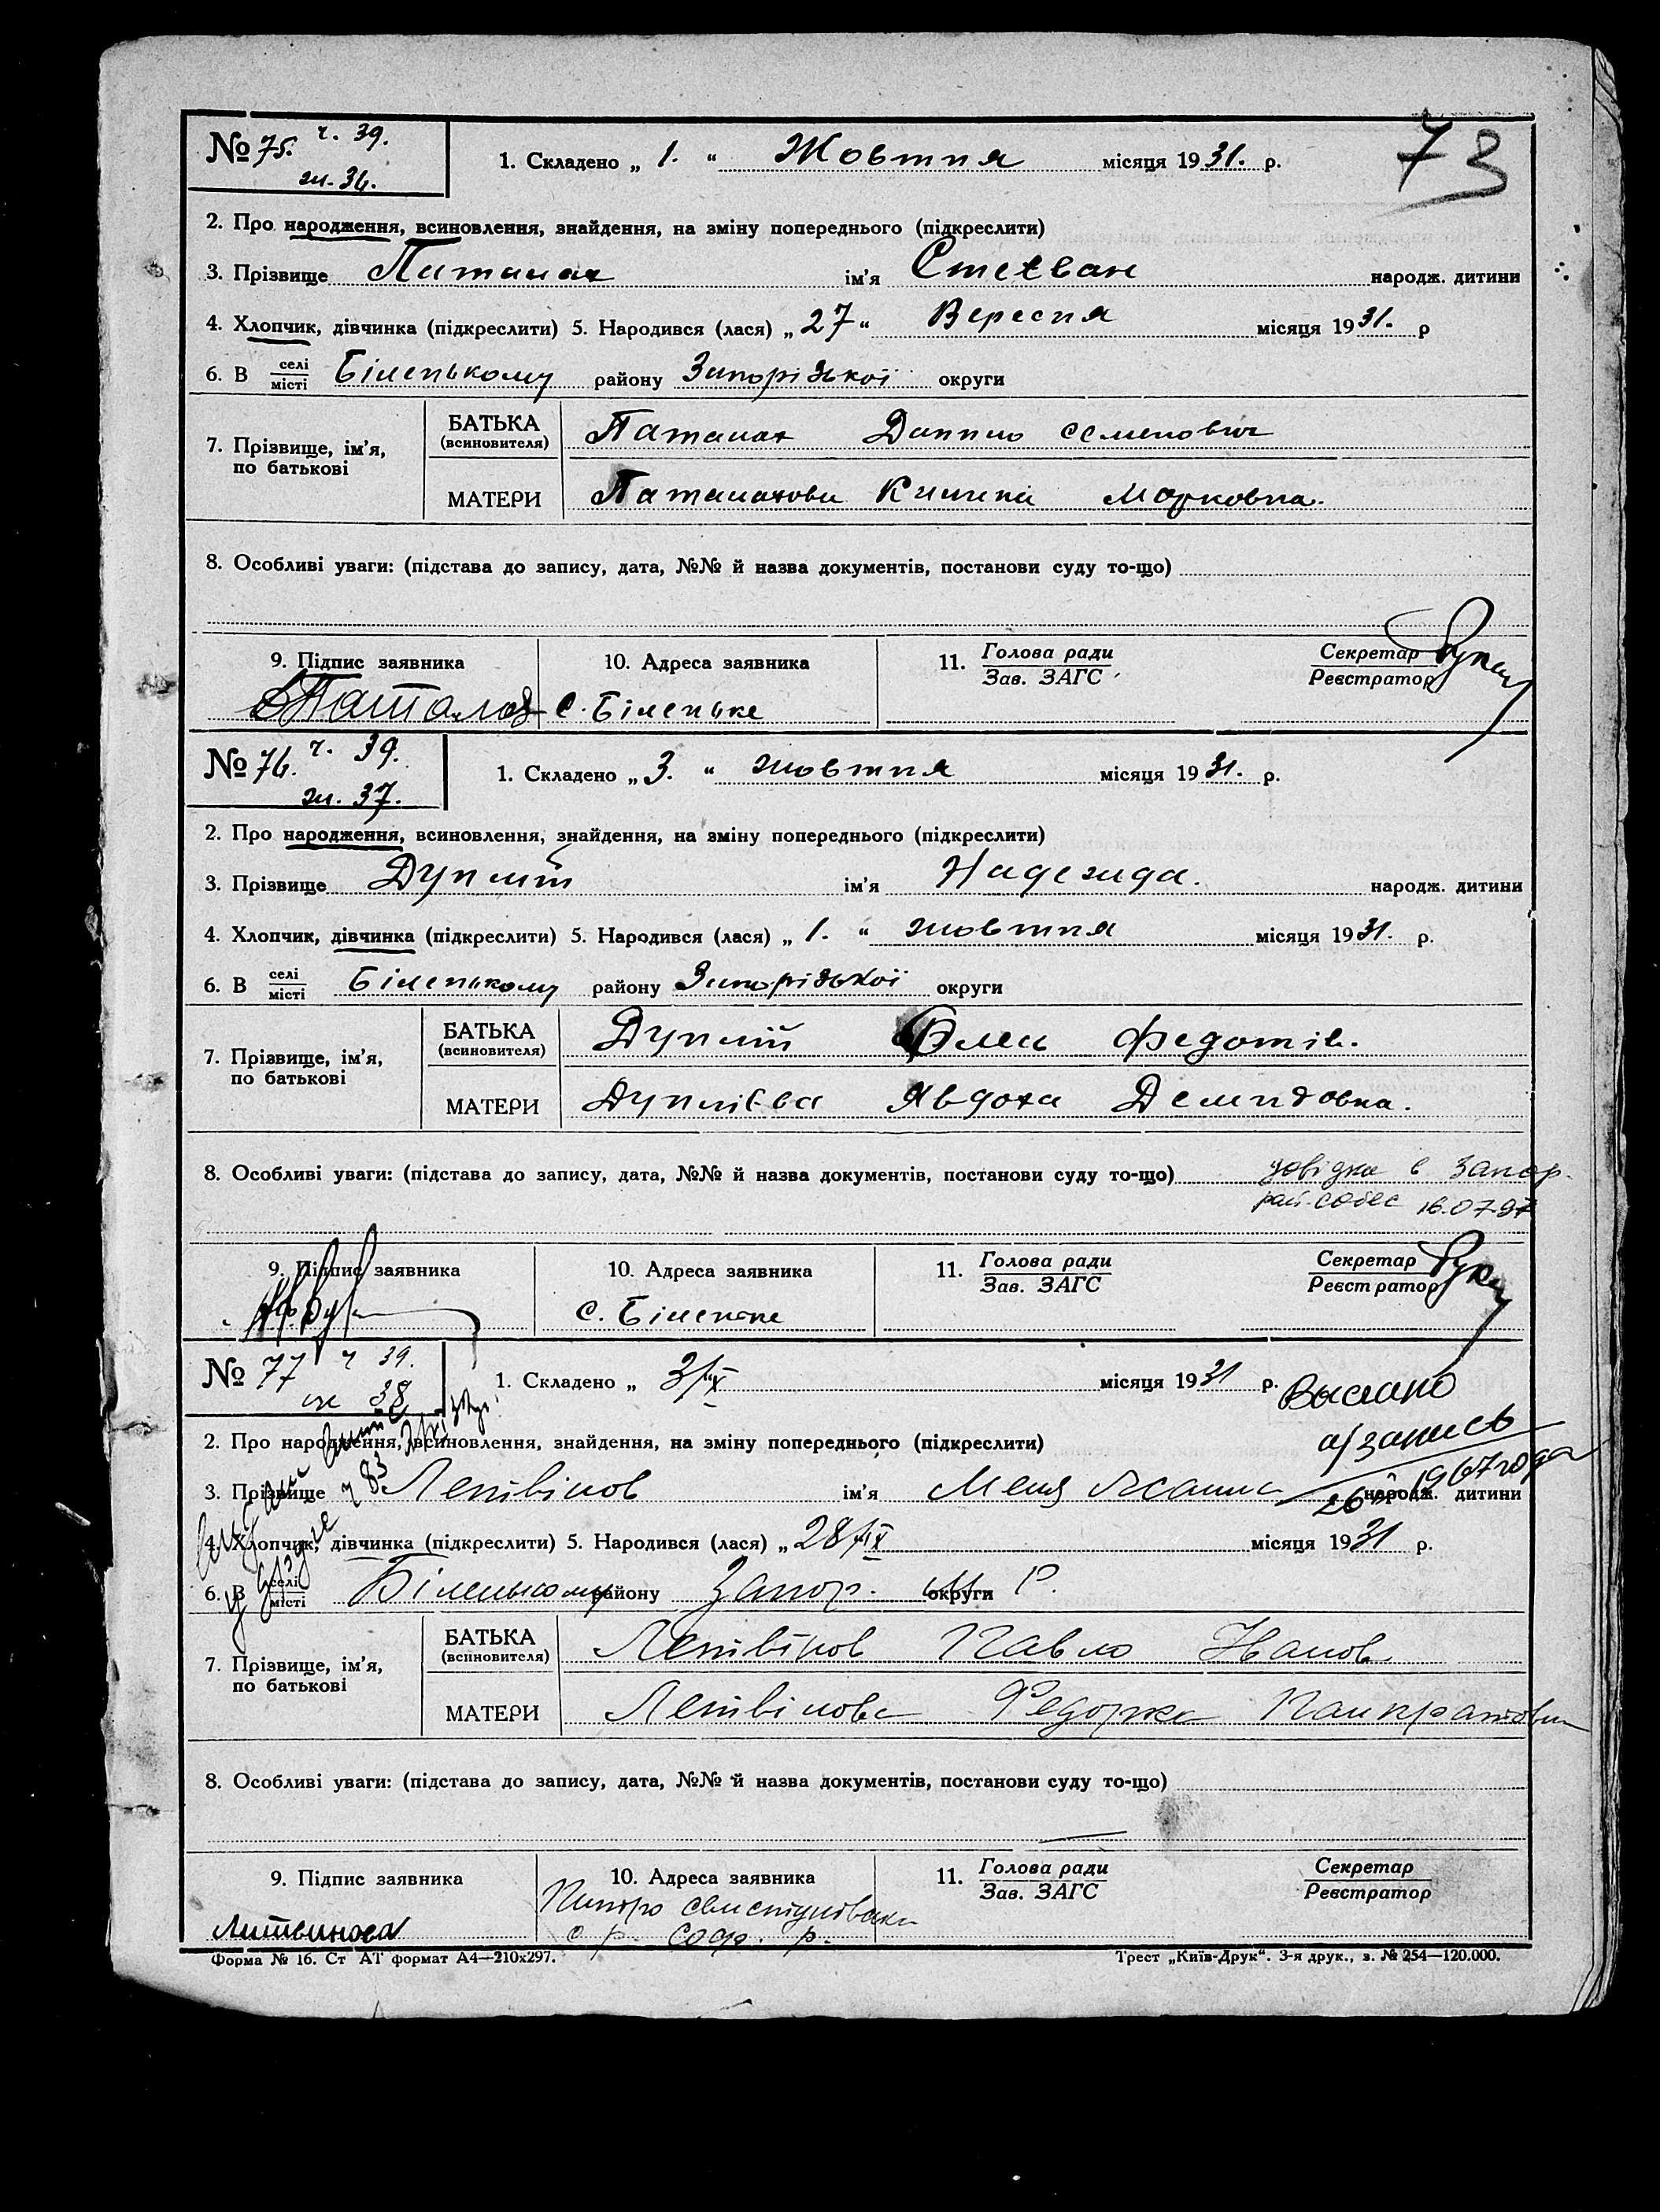 73
№ 75. ч. 39. ж. 36.
1. Складено „ 1. “ Жовтня місяця 1931. р.
2. Про народження, всиновлення, знайдення, на зміну попереднього (підкреслити)
3. Прізвище ім'я народж. дитини
4. Хлопчик, дівчинка (підкреслити) 5. Народився (лася) „ 27 “ Вересня місяця 1931. р
6. В селі місті Біленькому району Запорізької округи
7. Прізвище, ім'я, по батькові
БАТЬКА (всиновителя) Данило Семенович
МАТЕРИ Марковна.
8. Особливі уваги: (підстава до запису, дата, №№ й назва документів, постанови суду то-що)
9. Підпис заявника 10. Адреса заявника 11. Голова ради Зав. ЗАГС Секретар Реєстратор
с. Біленьке
№ 76. ч. 39. ж. 37.
1. Складено „ 3. “ жовтня місяця 1931. р.
2. Про народження, всиновлення, знайдення, на зміну попереднього (підкреслити)
3. Прізвище Дуплій ім'я Надежда. народж. дитини
4. Хлопчик, дівчинка (підкреслити) 5. Народився (лася) „ 1. “ жовтня місяця 1931. р.
6. В селі місті Біленькому району Запорізької округи
7. Прізвище, ім'я, по батькові
БАТЬКА (всиновителя) Дуплій Федотів.
МАТЕРИ Дуплієва Явдоха Демидовна.
8. Особливі уваги: (підстава до запису, дата, №№ й назва документів, постанови суду то-що) довідка в Запор.
рай. собес 16.07.97
9. Підпис заявника 10. Адреса заявника 11. Голова ради Зав. ЗАГС Секретар Реєстратор
с. Біленьке
№ 77 ч 39. ж 38
1. Складено „ 3/X місяця 1931 р.
Выслано
а/запись
26 1967 года
2. Про народження, всиновлення, знайдення, на зміну попереднього (підкреслити)
3. Прізвище Летвінов ім'я народж. дитини
4. Хлопчик, дівчинка (підкреслити) 5. Народився (лася) „ 28/IX місяця 1931 р.
6. В селі місті Біленькому району Запор. округи
7. Прізвище, ім'я, по батькові
БАТЬКА (всиновителя) Летвінов Павло Іванов
МАТЕРИ Летвінова Федорка Панкратовна
8. Особливі уваги: (підстава до запису, дата, №№ й назва документів, постанови суду то-що)
9. Підпис заявника 10. Адреса заявника 11. Голова ради Зав. ЗАГС Секретар Реєстратор
Литвинова с. р. Соф. р.
Форма № 16. Ст АТ формат А4—210х297. Трест „Київ-Друк“. 3-я друк., з. № 254—120.000.